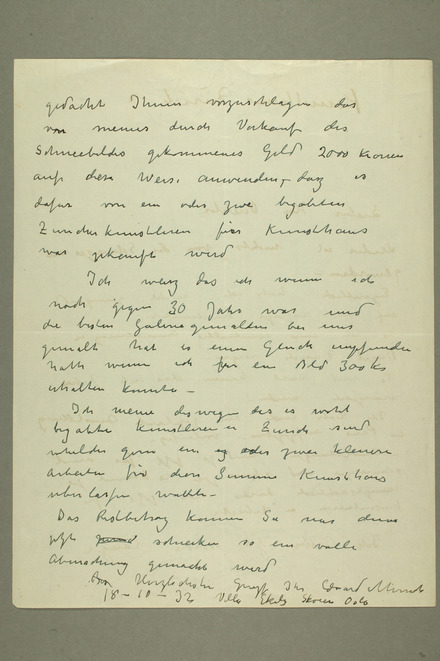 gedacht Ihnen vorzuschlagen das
von meines durch Verkauf des
Schneebildes gekommenes Geld 2000 Kronen
auf diese Weise anwenden – daz es
dafür von ein oder zwei begabten
Züricherkünstleren für Kunsthaus
was gekauft werd
Ich weisz das ich wenn ich
noch gegen 30 Jahr war und
die besten Galeriegemälden bei uns
gemalt hat es einen Gluck
hatte wenn ich für ein Bild 300 Kr
erhalten konnte –
Ich meine deswegen das es wohl
begabte Künstleren in Zurich sind
welches gern ein oder zwei kleinere
Arbeiten für diese Summe Kunsthaus
uberlassen wollte –
Das Restbetrag konnen Sie mir dann
jetzt schicken so ein volle
Abmachung gemacht werd
Herzlichster Grusz Ihr Edvard Munch
18 – 10 – 32 Villa Ekely Skøien Oslo